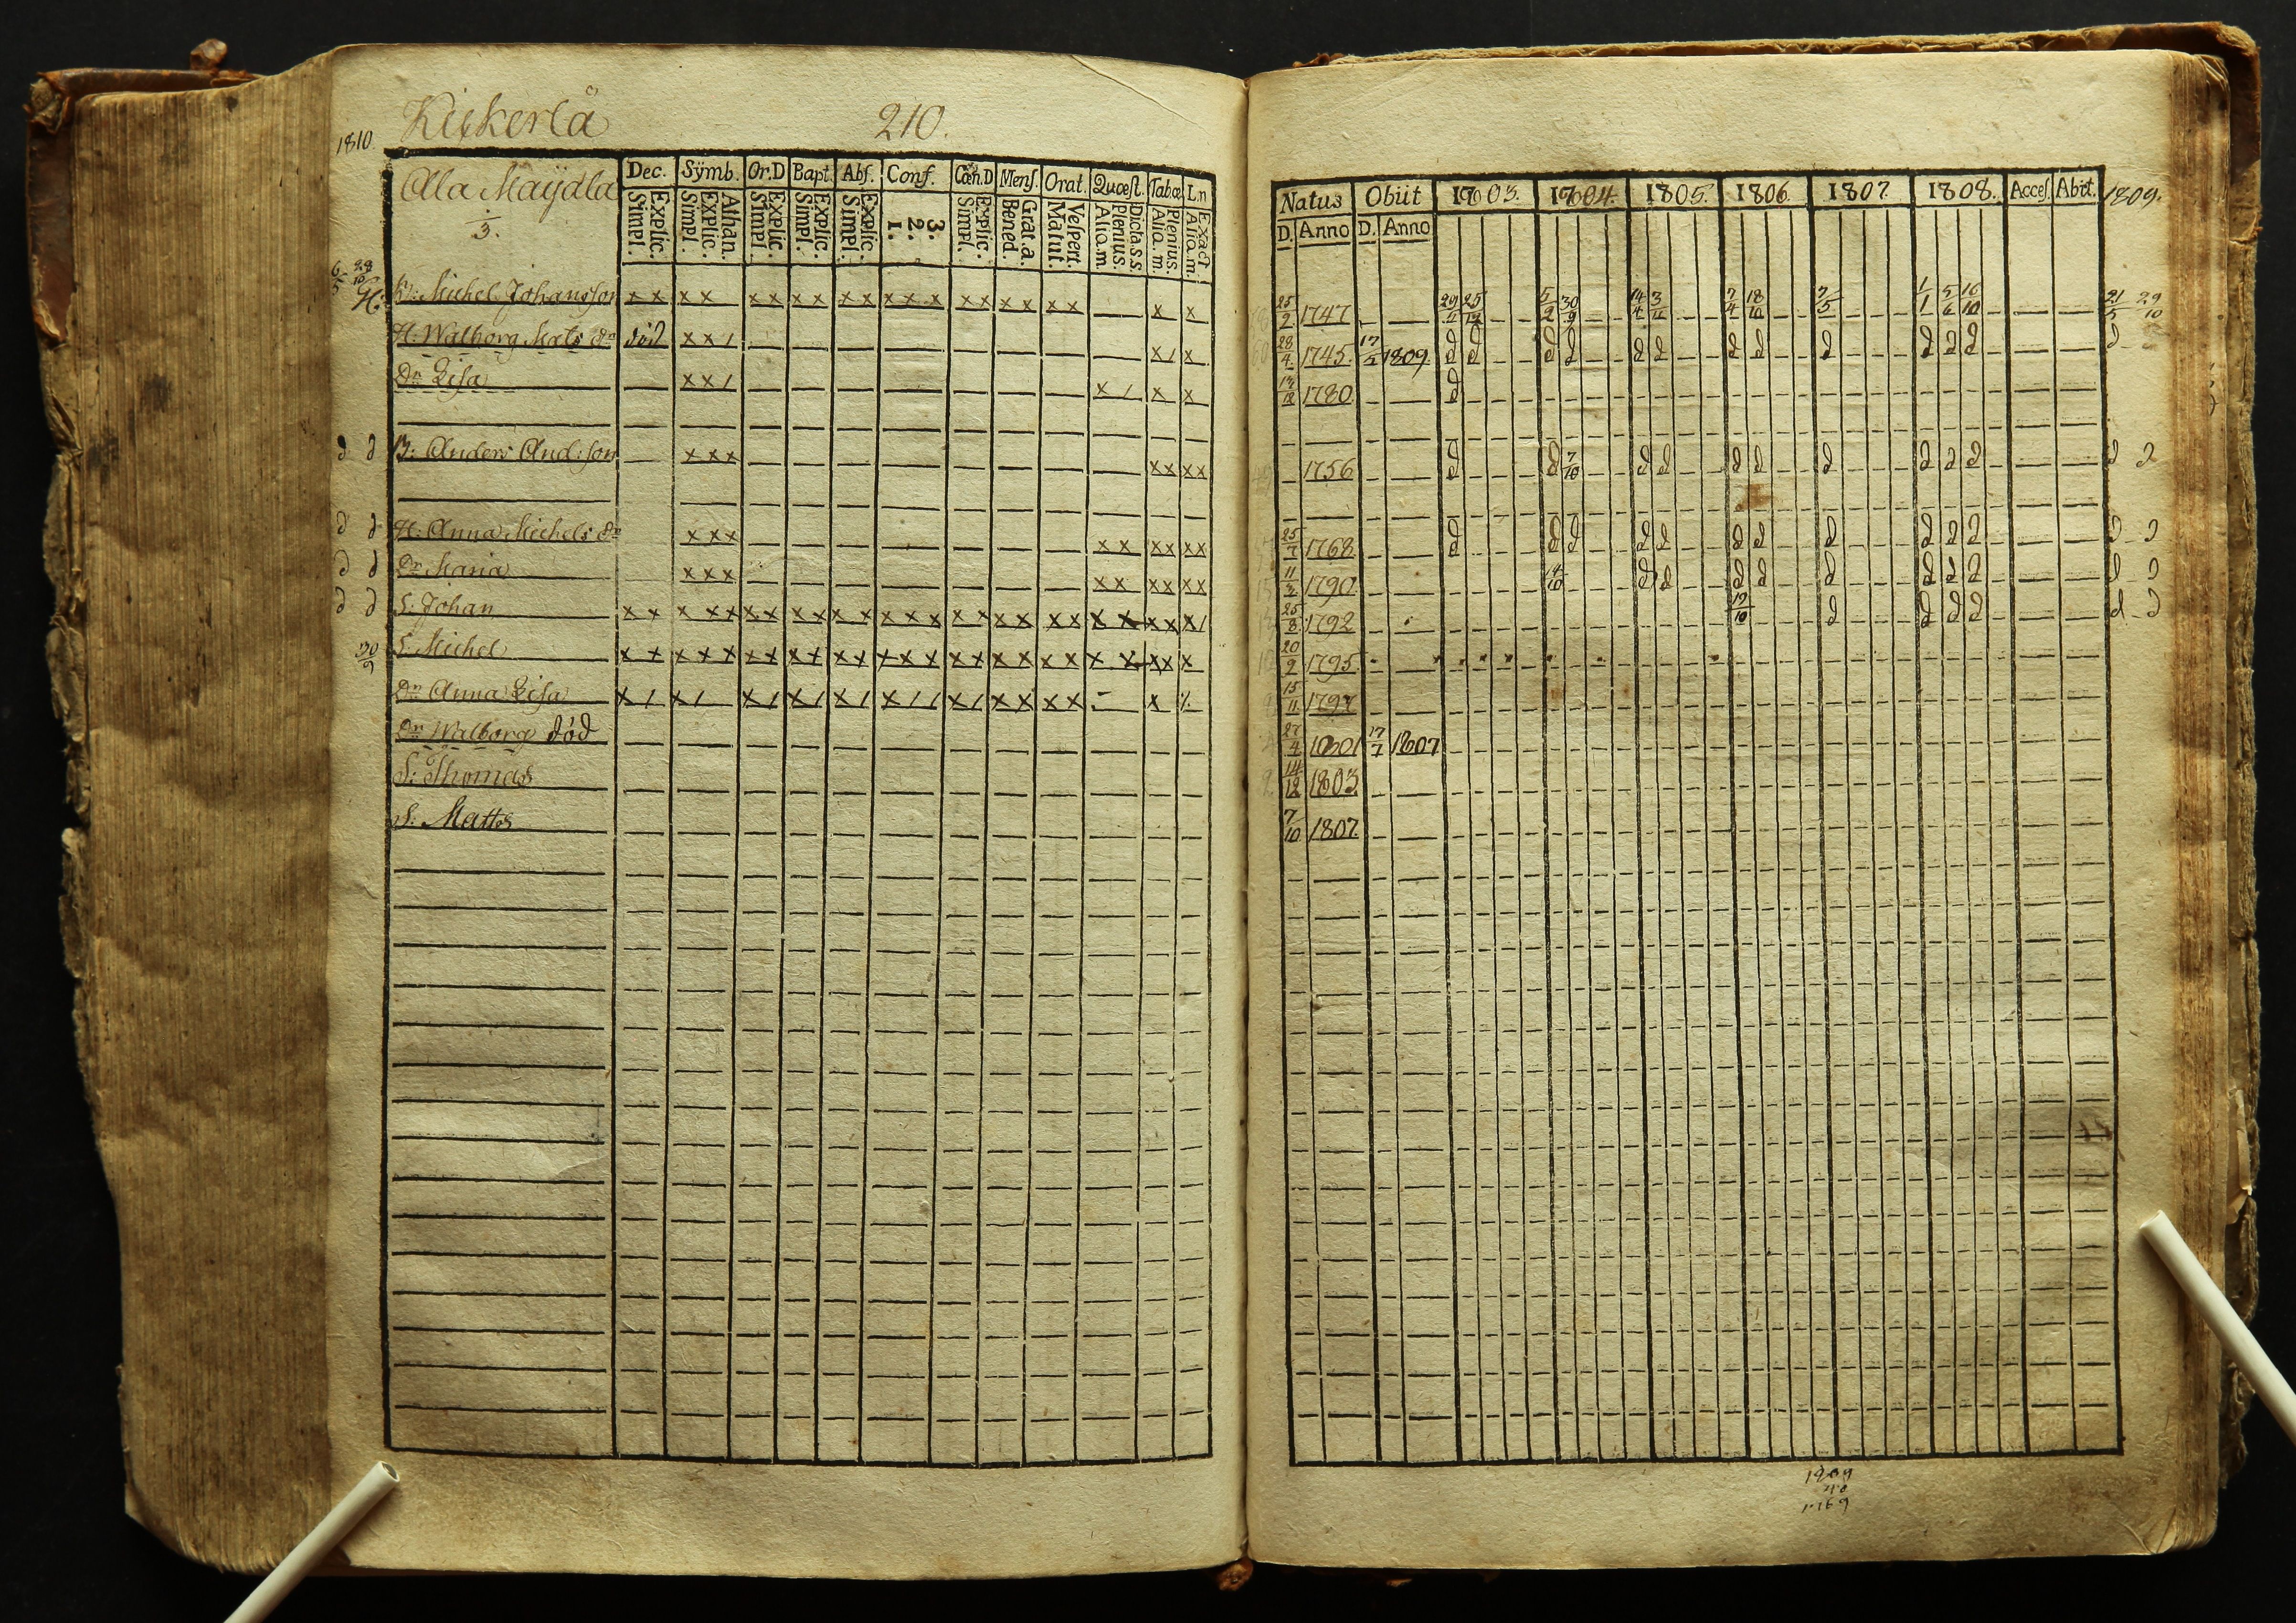 Kiikerlä 210.
1810.
Ala Maijdla Dec. Sÿmb. Or.D Bapt. Abs. Conf. Cœn.D Mens. Orat. Quæst. Tabœ L.n
1/3. Explic. Simpl. Athan. Explic. Simpl. Explic. Simpl. Explic. Simpl. Explic. Simpl. 3. 2. 1. Explic. Simpl. Grat.a. Bened. Vespert. Matut. Dicta.s.s. Plenius. Aliq.m. Plenius. Aliq.m. Exact Aliq.m.
6/5 28/10 H: Michel Johansson x x x x x x x x x x x x x x x x x x x x x
H: Walborg Mats dr död x x / x / x
Dr Lisa x x / x / x x
d d B: Anders And:son x x x x x x x
d d H: Anna Michels dr x x x x x x x x x
d d Dr Maria x x x x x x x x x
d d S: Johan x x x x x x x x x x x x x x x x x x x x x x x x x /
30/9 S: Michel x x x x x x x x x x x x x x x x x x x x x x x x x
Dr Anna Lisa x / x / x / x / x / x / / x / x x x x - x
Dr Walborg död
S: Thomas
S: Matts
Natus Obiit 1803. 1804. 1805. 1806. 1807. 1808. Acces. Abiit. 1809.
D. Anno D. Anno
25/2 1747 29/4 25/12 5/2 30/9 14/4 3/11 7/4 18/10 7/5 1/1 5/6 16/10 21/5 29/10
28/4 1745. 17/5 1809. d d d d d d d d d d d d d
14/12 1780 d
1756 d d 7/10 d d d d d d d d d d
25/7 1768 d d d d d d d d d d d d d
11/4 1790. 14/10 d d d d d d d d d d
25/8 1792 19/10 d d d d d d
20/9 1795
15/11 1797
27/4 1801 17/7 1807
14/12 1803
7/10 1807
1809
40
1769